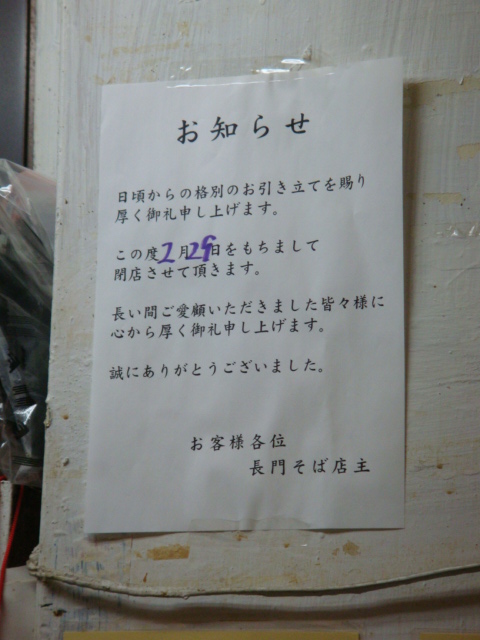 お知らせ
日頃からの格別のお引き立てを賜り
厚く御礼申し上げます。
この度2月29日をもちまして
閉店させて頂きます。
長い間ご愛顧いただきました皆々様に
心から厚く御礼申し上げます。
誠にありがとうございました。
お客様各位
長門そば店主